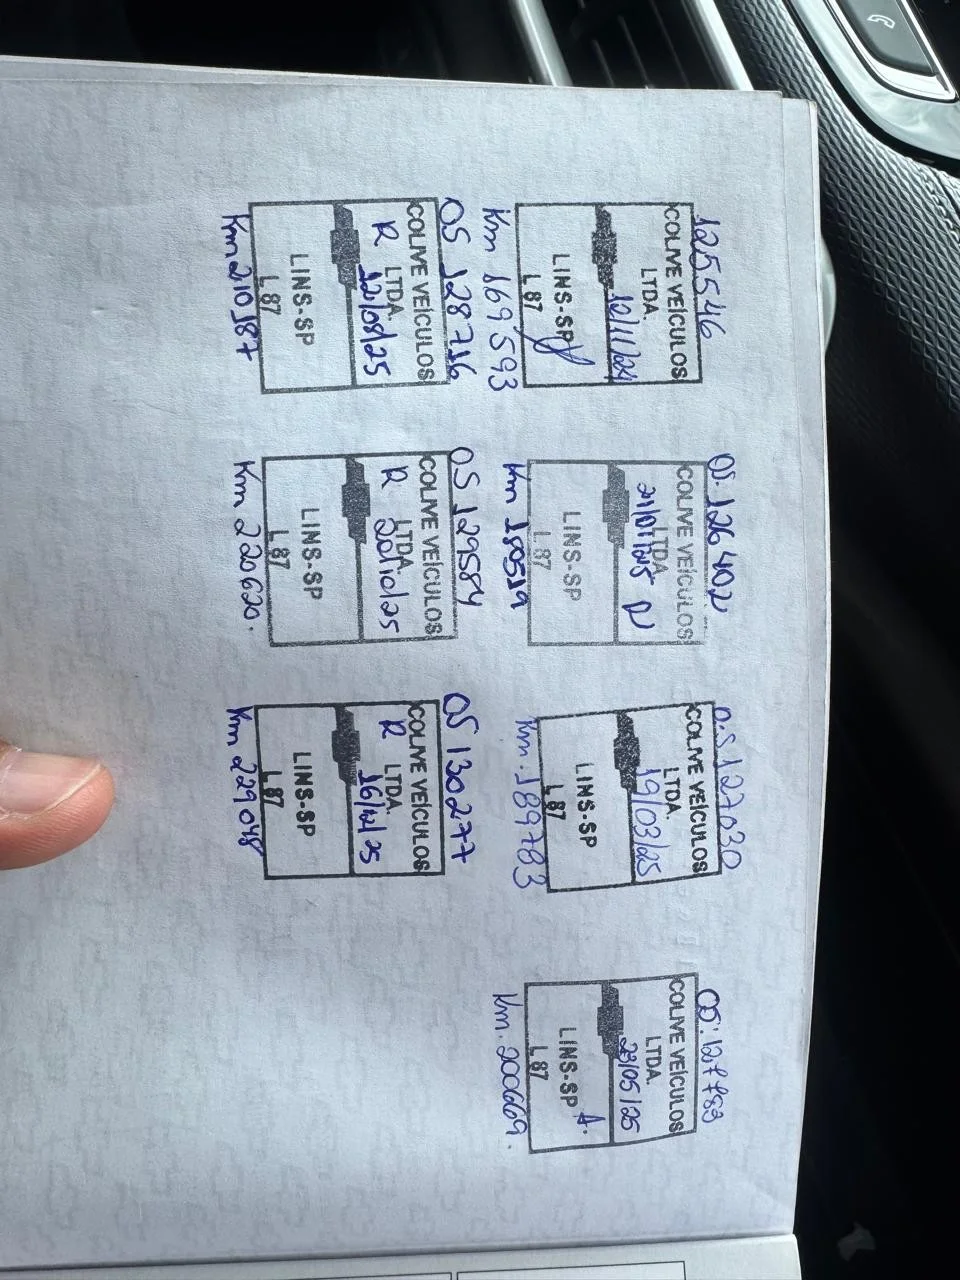 125546
COLIVE VEÍCULOS
LTDA.
12/11/24
LINS-SP
L 87
Km 169593
OS. 126402
COLIVE VEÍCULOS
LTDA
21/01/25 R
LINS-SP
L 87
Km 180519
O.S 127030
COLIVE VEÍCULOS
LTDA.
19/03/25
LINS-SP
L 87
Km. 189783
OS: 127783
COLIVE VEÍCULOS
LTDA.
23/05/25
LINS-SP A.
L 87
Km. 200669.
OS 128716
COLIVE VEÍCULOS
LTDA.
R 12/08/25
LINS-SP
L 87
Km 210187
OS 129584
COLIVE VEÍCULOS
LTDA
R 20/10/25
LINS-SP
L 87
Km 220620.
OS 130277
COLIVE VEÍCULOS
LTDA.
R 16/12/25
LINS-SP
L 87
Km 229048